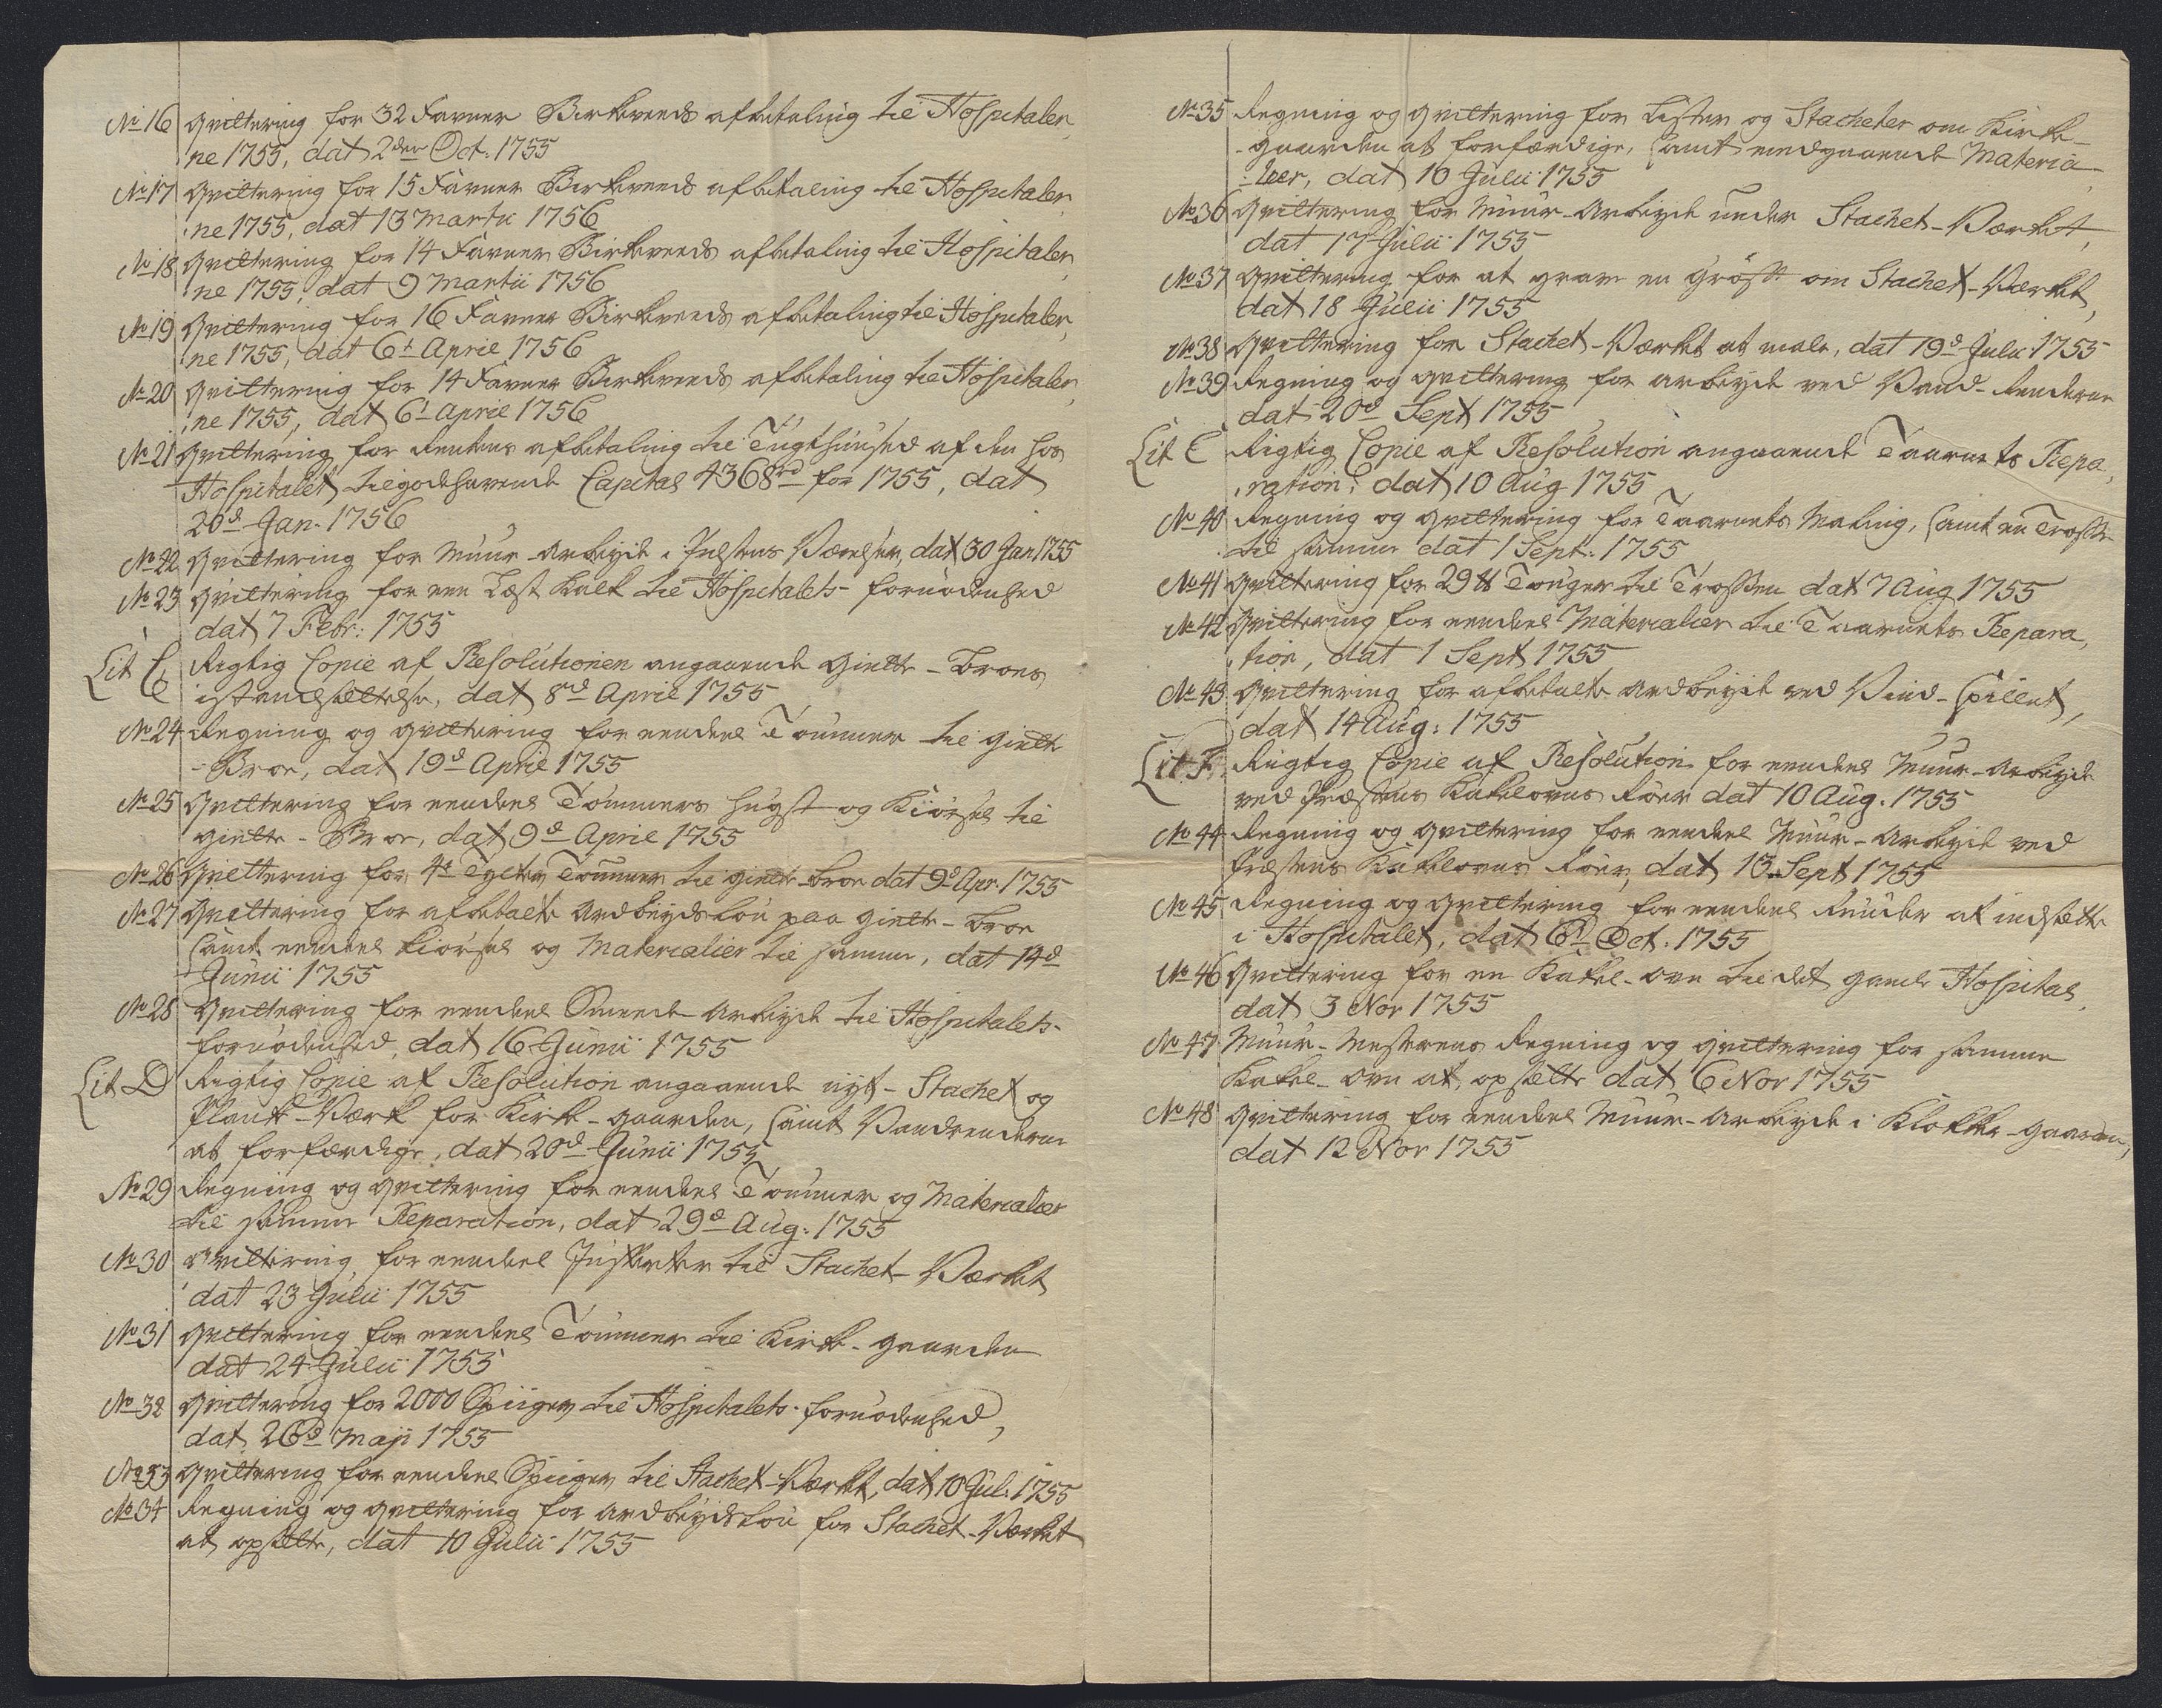 No 16 Qvittering for 32 Favner Birkeveeds afbetaling til Hospitaler,
ne 1755, dat 2den Oct: 1755
No 17 Qvittering for 15 Favner Birkeveeds afbetaling til Hospitaler,
ne 1755, dat 13 Martii 1756
No 18 Qvittering for 14 Favner Birkeveeds afbetaling til Hospitaler,
ne 1755, dat 9 Martii 1756
No 19 Qvittering for 16 Favner Birkeveeds afbetaling til Hospitaler,
ne 1755, dat 6t April 1756
No 20 Qvittering for 14 Favner Birkeveeds afbetaling til Hospitaler,
ne 1755, dat 6t April 1756
No 21 Qvittering for Rentens afbetaling til Tugthuused af den hos
Hospitalet tilgodehavende Capital 4368rd for 1755, dat
20d Jan. 1756
No 22 Qvittering for Muur-Arbeyde i Præstens Værelser, dat 30 Jan 1755
No 23 Qvittering for een Læst Kalk til Hospitalets fornødenhed
dat 7 Febr: 1755
Lit C Rigtig Copie af Resolutionen angaaende Gielte-Broens
istandsættelse, dat 8d April 1755
No 24 Regning og Qvittering for eendeel Tømmer til Gielte
-Broe, dat 19d April 1755
No 25 Qvittering for eendeel Tømmers hugst og Kiørsel til
Gielte-Broe, dat 9d April 1755
No 26 Qvittering for 4t Tylter Tømmer til Gielte-Broe dat 9d Apr. 1755
No 27 Qvittering for afbetalte Ardbeydsløn paa Gielte-Broe
samt eendeel Kiørsel og Materialier til samme, dat 14d
Junii 1755
No 28 Qvittering for eendeel Smede-Arbeyde til Hospitalets
fornødenhed, dat 16 Junii 1755
Lit D Rigtig Copie af Resolution angaaende nyt-Stachet og
Plank-Værk for Kirke-gaarden, samt Vandrenderne
at forfærdige, dat 20d Junii 1755
No 29 Regning og Qvittering for eendeel Tømmer og Materialier
til samme Reparation, dat 29d Aug: 1755
No 30 Qvittering for eendeel til Stachet-Værket
dat 23 Julii 1755
No 31 Qvittering for eendeel Tømmer til Kirke-gaarden
dat 24 Julii 1755
No 32 Qvittering for 2000 Spiiger til Hospitalets fornødenhed,
dat 26d Maji 1755
No 33 Qvittering for eendeel Spiiger til Stachet-Værket, dat 10 Jul: 1755
No 34 Regning og Qvittering for Ardbeydsløn for Stachet-Værket
at opsette, dat 10 Julii 1755
No 35 Regning og Qvittering for Lister og Stacheter om Kirke-
gaarden at forfærdige, samt medgaaende Materia-
lier, dat 10 Julii 1755
No 36 Qvittering for Muur-Arbeyde under Stachet-Værket,
dat 17 Julii 1755
No 37 Qvittering for at grave en Grøft om Stachet-Værket,
dat 18 Julii 1755
No 38 Qvittering for Stachet-Værket at male, dat 19d Julii 1755
No 39 Regning og Qvittering for Arbeyde ved Vand-Renderne
dat 20d Sept 1755
Lit E Rigtig Copie af Resolution angaaende Taarnets Repa,
ration, dat 10 Aug 1755
No 40 Regning og Qvittering for Taarnets Maling, samt en Trosse
til samme dat 1 Sept: 1755
No 41 Qvittering for 29 ℔ Touger til Trossen dat 7 Aug 1755
No 42 Qvittering for eendeel Materialier til Taarnets Repara,
tion, dat 1 Sept 1755
No 43 Qvittering for afbetalte Ardbeyde ved Vind-Spillet,
dat 14 Aug: 1755
Lit F. Rigtig Copie af Resolution for eendeel Muur-Arbeyde
ved Præstens Kakelovns Røer dat 10 Aug. 1755
No 44 Regning og Qvittering for eendeel Muur-Arbeyde ved
Præstens Kakelovns Røer, dat 13 Sept 1755
No 45 Regning og Qvittering for eendeel Ruuder at indsette
i Hospitalet, dat 6t Oct. 1755
No 46 Qvittering for en Kakel-Ovn til det gamle Hospital,
dat 3 Nov 1755
No 47 Muur-Mesterens Regning og Qvittering for samme
Kakel-Ovn at opsette dat 6 Nov 1755
No 48 Qvittering for eendeel Muur-Arbeyde i Klokker-gaarden,
dat 12 Nov 1755